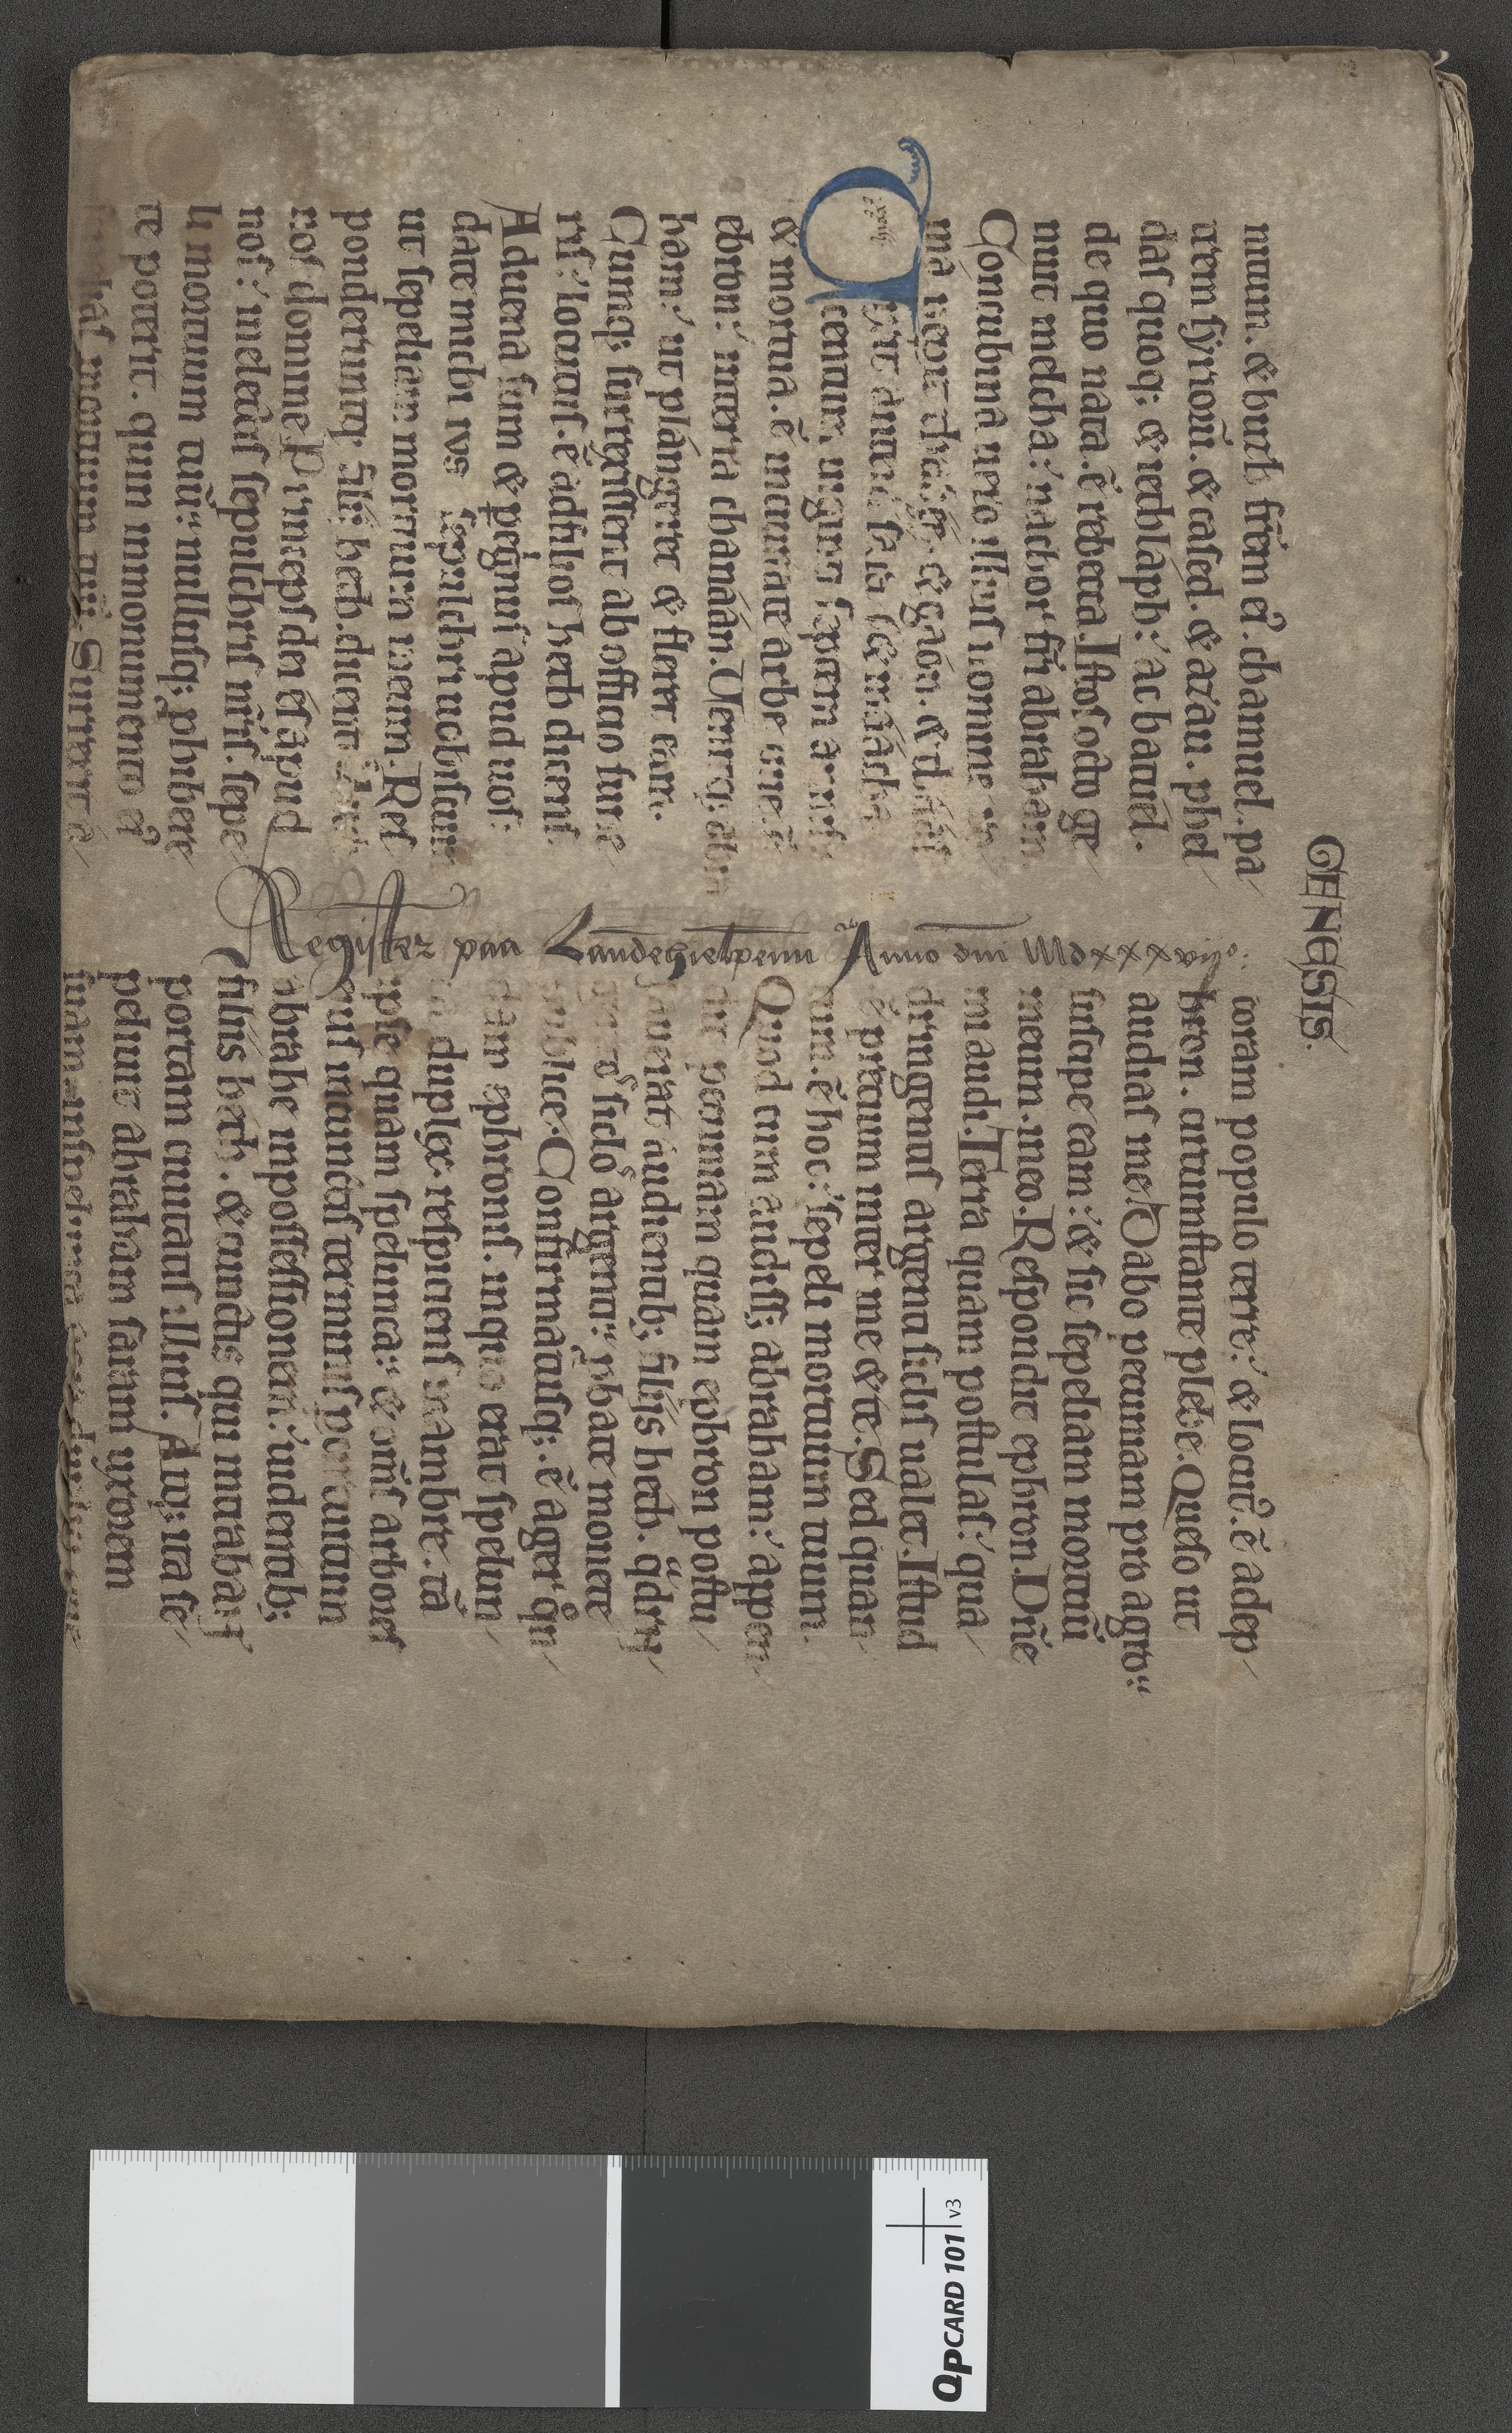 GENESIS.
num. & buz frēm ei᷒. chamuel. pa
trem syrioꝝ. & cased. & azau. phel
das quoq; & iedlaph: ac batuel.
de quo nata. ē rebecca. Istos octo ge
nuit melcha: nachor fr̄i abraham
Concubina uero illius nomine
ma peperit & gaon. &
Vixit
centum uiginti septem annis
& mortua. ē in ciuitate arbe que. ē
ebron: in terra chanáán. Uenitq; abra
ham: ut plángeret & fleret eam.
Cumq; surrexisset ab officio fune
ris: locutus. ē ad filios heth dicens
Aduena sum & peregrinus apud uos:
date michi ius sepulchri uobiscum
ut sepeliam mortuum meum. Res
ponderuntq; filii heth. dicentes
nos domine Princeps dei és apud
nos: in electis sepulchris nr̄is. sepe
li mortuum tuū: nullusq; phibere
te poterit. quin in monumento ei᷒
mortuum tuū. Surrexit
Register paa Landehielpenn Anno dni mdxxxviiº:
coram populo terre: & locutꝰ. ē ad ep
hron. circumstante plebe. Queso ut
audias me Dabo pecuniam pro agro:
suscipe eam: & sic sepeliam mortuū
meum. in eo. Respondit ephron. Dn̄e
mi audi. Terra quam postulas: qua
dringentis argenti siclis ualet. Istud
ē precium inter me & te. Sed quan
tum. ē hoc: sepeli mortuum tuum.
Quod cum audisset abraham: appen
dit pecuniam quam ephron postu
lauerat audientib; filiis heth. qͣdrin
siclos argenti: pbate monete
publice. Confirmatusq;. ē ager qͦn
dam ephronis. in quo erat spelun
ca duplex. respiciens mambre. tā
ipse quam spelunca: & om̄s arbores
eius in cunctis terminis per circuitum
abrahe in possessionem: uidentib;
filiis heth. & cunctis qui intrabant
portam ciuitatis illius. Atq; ita se
peliuit abraham saram uxorem
suam. in spelunca
QPCARD 101 v3